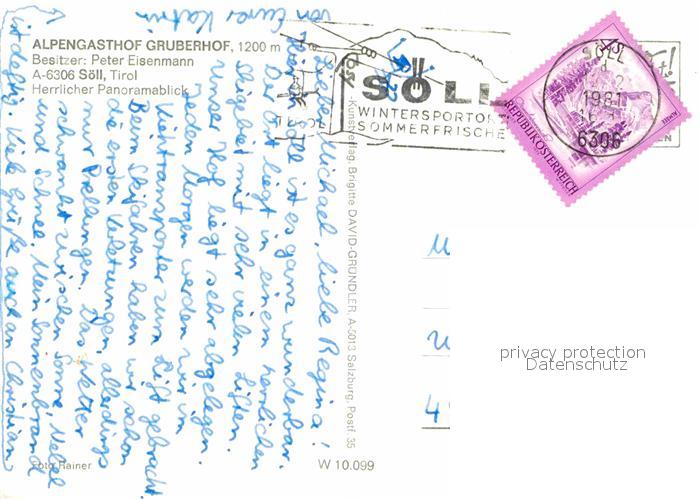 ALPENGASTHOF GRUBERHOF, 1200 m
Besitzer: Peter Eisenmann
A-6306 Söll, Tirol
Herrlicher Panoramablick
SÖLL
WINTERSPORTORT
SOMMERFRISCHE
TIROL
SÖLL
1981
6306
REPUBLIK ÖSTERREICH
Kunstverlag Brigitte DAVID-GRÜNDLER, A-5013 Salzburg, Postf. 35
Lieber Michael, liebe Regina!
Heute ist es ganz wunderbar.
Der Ort liegt in einem herrlichen
Skigebiet mit sehr vielen Liften.
Unser Hof liegt sehr abgelegen.
Jeden Morgen werden wir im
Viehtransporter zum Lift gebracht.
Beim Skifahren haben wir schon
die ersten Verletzungen, allerdings
nur Prellungen. Das Wetter
schwankt zwischen Sonne, Nebel
und Schnee. Mein Sonnenbrand
ist deftig. Viele Grüße auch an Christian
von Eurer Katrin
Foto Rainer
W 10.099
privacy protection
Datenschutz